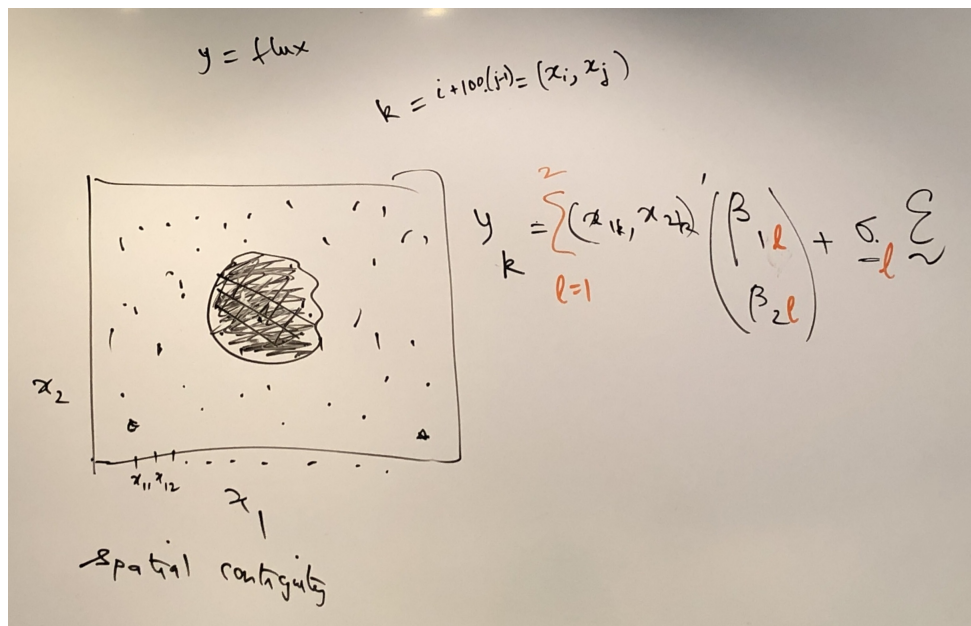 y = flux
k = i+100.(j-1) = (x_i, x_j)
y_k = Σ_{l=1}^{2} (x_{1k}, x_{2k})' (β_{1l} β_{2l}) + σ_l ε
x_2
x_11 x_12
x_1
spatial contiguity